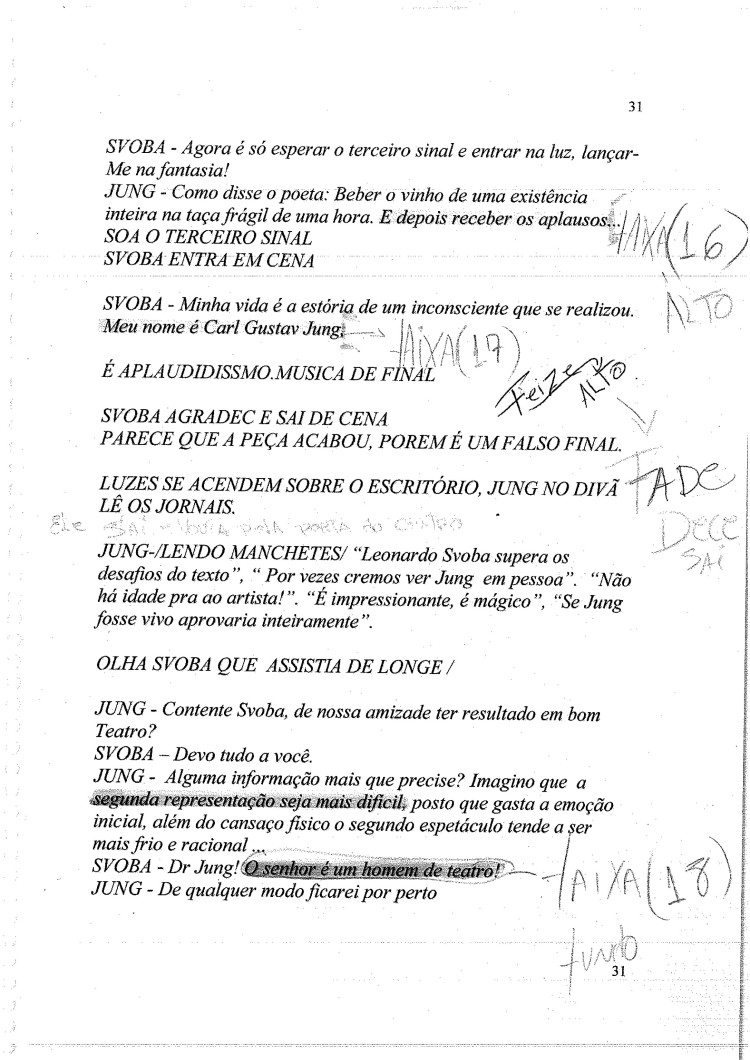 31
SVOBA - Agora é só esperar o terceiro sinal e entrar na luz, lançar-
Me na fantasia!
JUNG - Como disse o poeta: Beber o vinho de uma existência
inteira na taça frágil de uma hora. E depois receber os aplausos...
FAIXA (16)
SOA O TERCEIRO SINAL
SVOBA ENTRA EM CENA
ALTO
SVOBA - Minha vida é a estória de um inconsciente que se realizou.
Meu nome é Carl Gustav Jung.
FAIXA (17)
É APLAUDIDISSMO.MUSICA DE FINAL
ALTO
SVOBA AGRADEC E SAI DE CENA
PARECE QUE A PEÇA ACABOU, POREM É UM FALSO FINAL.
FADE
LUZES SE ACENDEM SOBRE O ESCRITÓRIO, JUNG NO DIVÃ
LÊ OS JORNAIS.
Ele SAI pela porta do centro
DECE
SAI
JUNG-/LENDO MANCHETES/ “Leonardo Svoba supera os
desafios do texto”, “ Por vezes cremos ver Jung em pessoa”. “Não
há idade pra ao artista!”. “É impressionante, é mágico”, “Se Jung
fosse vivo aprovaria inteiramente”.
OLHA SVOBA QUE ASSISTIA DE LONGE /
JUNG - Contente Svoba, de nossa amizade ter resultado em bom
Teatro?
SVOBA – Devo tudo a você.
JUNG - Alguma informação mais que precise? Imagino que a
segunda representação seja mais difícil, posto que gasta a emoção
inicial, além do cansaço físico o segundo espetáculo tende a ser
mais frio e racional ...
SVOBA - Dr Jung! O senhor é um homem de teatro!
FAIXA (18)
JUNG - De qualquer modo ficarei por perto
fundo
31